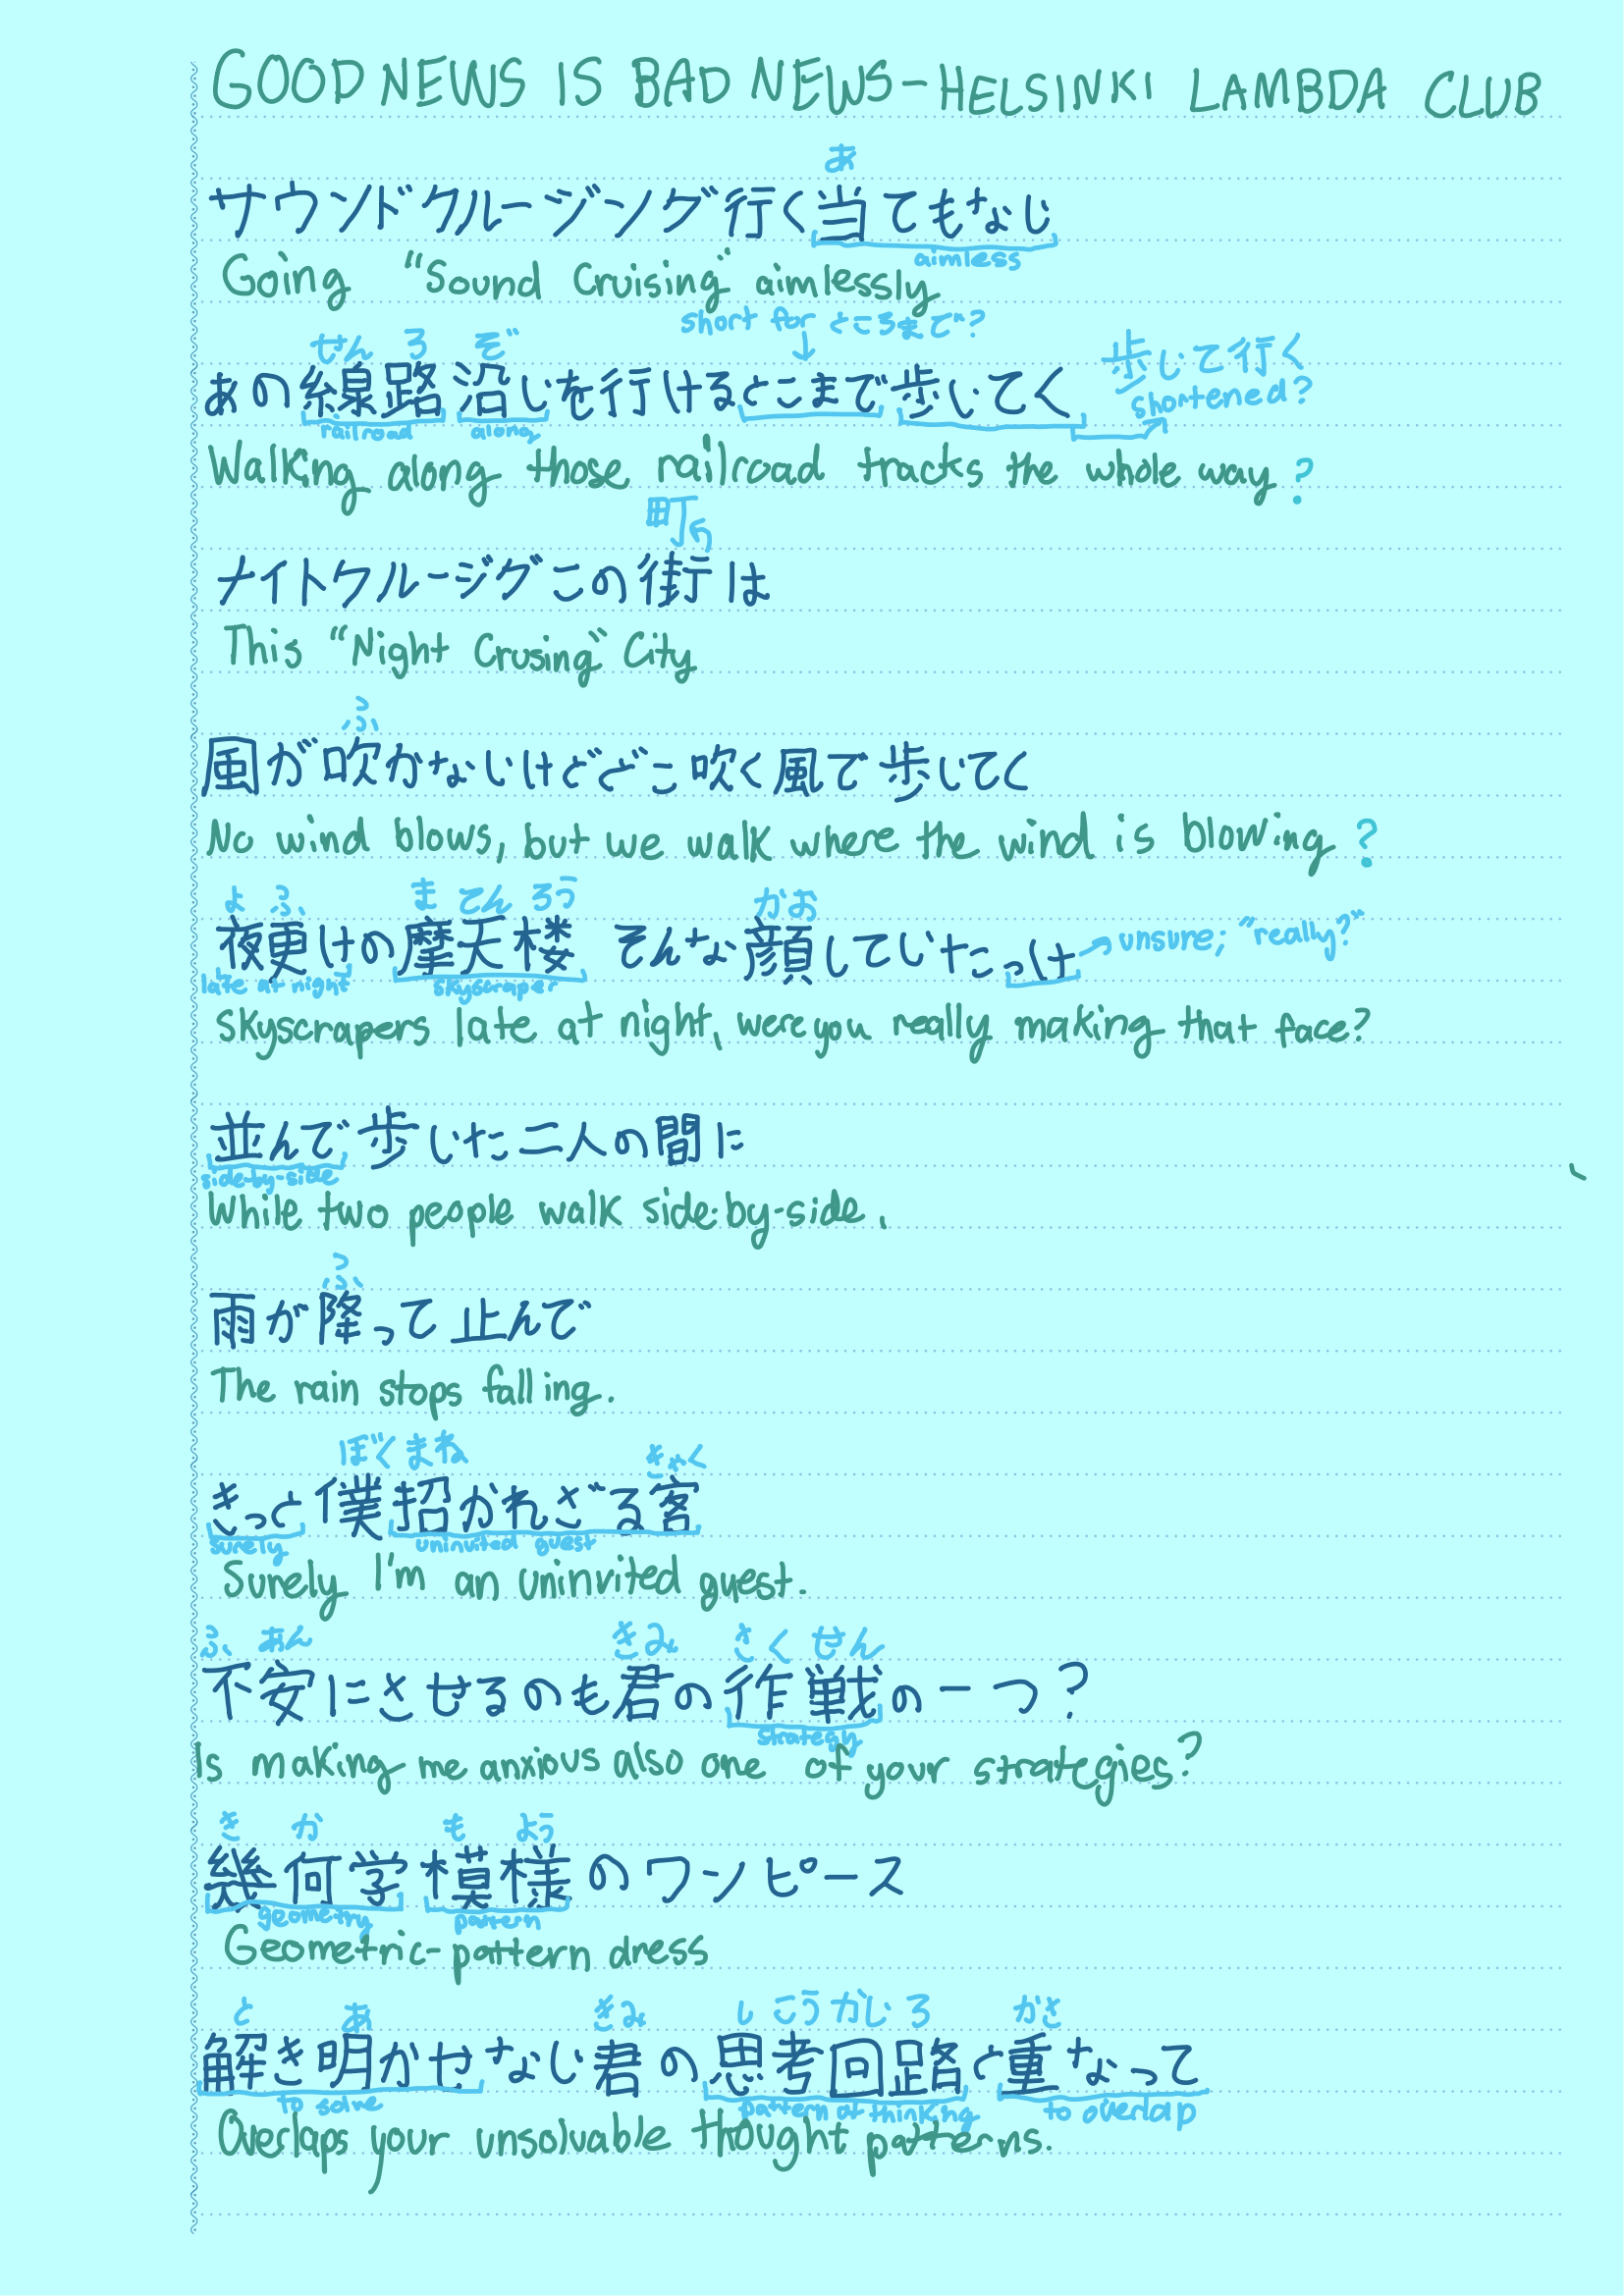 GOOD NEWS IS BAD NEWS - HELSINKI LAMBDA CLUB
あ
サウンドクルージング行く当てもなし
aimless
Going "Sound Cruising" aimlessly
short for ところまで?
せん ろ ぞ
あの線路沿いを行けるとこまで歩いてく
歩いて行く
shortened?
railroad along
Walking along those railroad tracks the whole way?
町
ナイトクルージグこの街は
This "Night Crusing" City
ふ
風が吹かないけどどこ吹く風で歩いてく
No wind blows, but we walk where the wind is blowing?
よ ふ ま てん ろう かお
夜更けの摩天楼 そんな顔していたっけ
unsure; "really?"
late at night skyscraper
Skyscrapers late at night, were you really making that face?
並んで歩いた二人の間に
side-by-side
While two people walk side-by-side,
ふ
雨が降って止んで
The rain stops falling.
ぼく まね きゃく
きっと僕招かれざる客
surely uninvited guest
Surely I'm an uninvited guest.
ふ あん きみ さく せん
不安にさせるのも君の作戦の一つ?
strategy
Is making me anxious also one of your strategies?
き か も よう
幾何学模様のワンピース
geometry pattern
Geometric-pattern dress
と あ きみ しこうかいろ かさ
解き明かせない君の思考回路と重なって
to solve pattern of thinking to overlap
Overlaps your unsolvable thought patterns.